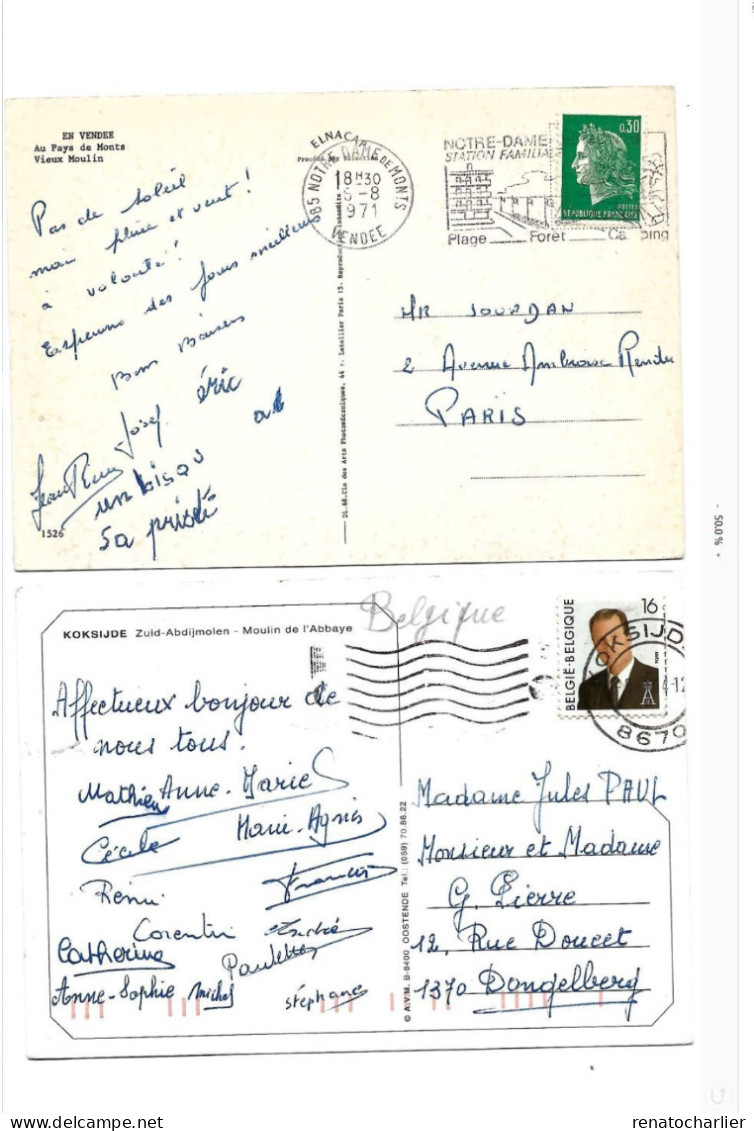 EN VENDEE
Au Pays de Monts
Vieux Moulin
Pas de soleil
mais pluie et vent !
à volonté !
Espérons des jours meilleurs
Bons Baisers
Josef éric
Jean Rémi
un bisou
1526
85 NOTRE DAME DE MONTS
18H30
-8
1971
VENDEE
NOTRE-DAME
STATION FAMILIA
Plage Forêt Ca ping
0,30
POSTES
REPUBLIQUE FRANÇAISE
MR JOURDAN
2 Avenue Ambroise Rendu
PARIS
KOKSIJDE Zuid-Abdijmolen - Moulin de l'Abbaye
Belgique
Affectueux bonjour de
nous tous.
Mathieu Anne-Marie
Cécile Marie-Agnès
Rémi Francis
Corentin André
Catherine Paulette
Anne-Sophie Michel stéphane
© A.V.M. B-8400 OOSTENDE Tel.: (059) 70.86.22
BELGIË-BELGIQUE
16
OKSIJD
8670
Madame Jules PAUL
Monsieur et Madame
G. Pierre
12, Rue Doucet
1370 Dongelberg
- 50.0% +
renatocharlier